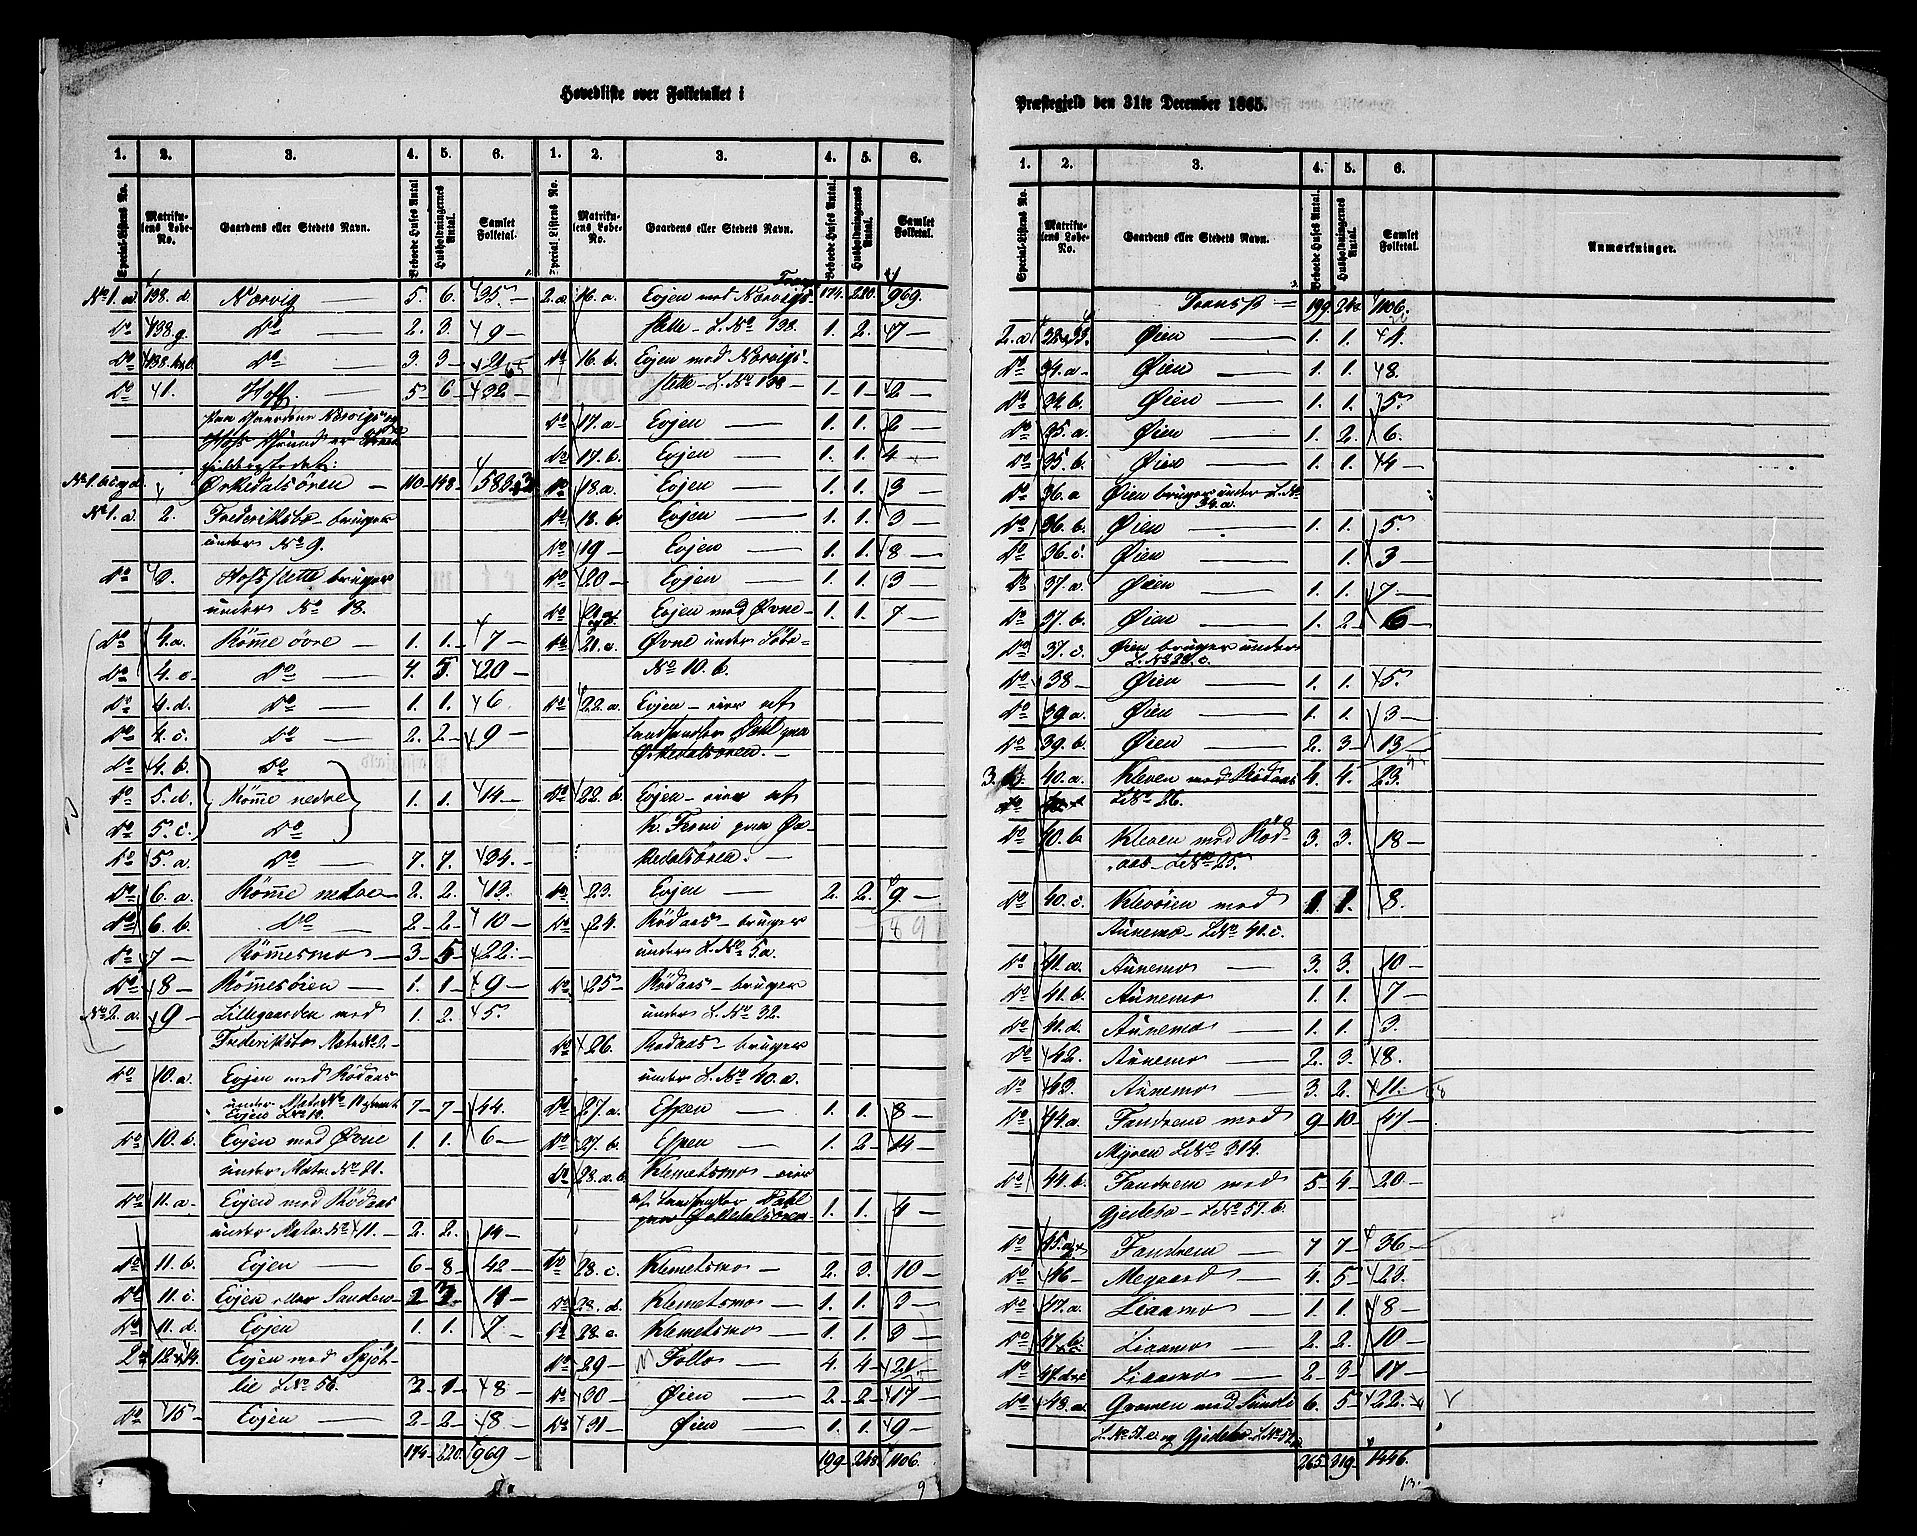 Hovedliste over Folketallet i
1. 2. 3. 4. 5. 6. 1. 2. 3. 4. 5. 6.
Special-Listens No. Matrikulens Løbe-No. Gaardens eller Stedets Navn. Beboede Huses Antal Husholdningernes Antal. Samlet Folketal.
Special-Listens No. Matrikulens Løbe-No. Gaardens eller Stedets Navn. Beboede Huses Antal. Husholdningernes Antal. Samlet Folketal.
No 1. a. 138. d. Norvig 5. 6. 35.
Do 138 g. Do 2. 3. 9
Do Do 3. 3 21
Do 1. Hoff 5 6 32
Ørkedalsören 110 158 583
No 1. a. 2. Frederiksbo bruger
under No 9.
Do 3. Hofsslette bruger
under No 18.
Do 4. a. Römme övre 1. 1. 7
Do 4. e. Do 4. 5. 20
Do 4. d. Do 1. 1. 6
Do 4. c. Do 2. 2 9
Do 4. b. Do
Do 5. d. Römme nedre 1. 1. 14
Do 5. c. Do
Do 5. a. Do 7. 7. 34.
Do 6. a. Römme nedre 2. 2. 13.
Do 6. b. Do 2 2 10
Do 7 Römmesmo 3 5 22
Do 8 Römmesöien 1. 1 9
No 2. a. 9 Lillegaarden med 1. 2. 5.
Frederiksbo Matr No 2
Do 10. a. Evjen med Rödaas
7 7 44.
Do 10. b. Evjen med Øvne 1. 1. 6
under Matr. No 21.
Do 11. a Evjen med Rödaas
under Matr. No 11. 2. 2. 14
Do 11. b. Evjen 6 8 42
Do 11. c. Evjen eller Sandmo 2 2 11
Do 11. d. Evjen 1. 1. 7.
Do Evjen med Spjöt-
lie L No 56. 2 1 8
Do 15 Evjen 2 2 8
174 220 969
2. a 16. a. Evjen med Norvigs 174. 220. 969.
slette L. No 138. 1. 2. 7
Do 16. b. Evjen med Norvigs-
slette L. No 138 1 1 2
Do 17. a Evjen 1. 1.
Do 17. b. Evjen 1. 1. 4
Do 18. a. Evjen 1. 1. 3
Do 18. b. Evjen 1. 1. 3
Do 19 Evjen 1. 1. 8
Do 20 Evjen 1. 1. 3
Do Evjen med Øvne 1. 1. 7
Do 21. c. Øvne under Löbe-
No 10. b.
Do 22. a. Evjen eier af
Landhandler Dahl paa
Ørkedalsören.
Do 22. b. Evjen eier af
paa Ør-
kedalsören.
Do 23. Evjen 2. 2. 9
Do 24. Rödaas bruger
under L. No 5. a.
Do 25 Rödaas bruger
under L. No 32.
Do 26. Rodaas bruger
under L. No 40. a.
Do 27. a Espen 1. 1. 8
Do 27. b. Espen 1. 2 14
Do 28. a. b. Klemetsmo eier
af Landhandler Dahl
paa Ørkedalsören 1. 1. 4
Do 28. c. Klemetsmo 2. 3. 10
Do 28. d. Klemetsmo 1. 1. 3
Do 28. e. Klemetsmo 1. 1 3
Do 29 Follo 4. 4 21
Do 30 Øien 2 2 17
Do 31 Øien 1. 1. 9
199 248 1106.
Præstegjeld den 31te December 1865.
1. 2. 3. 4. 5. 6.
Special-Listens No. Matrikulens Løbe-No. Gaardens eller Stedets Navn. Beboede Huses Antal. Husholdningernes Antal. Samlet Folketal. Anmærkninger.
Transp = 199 248 1106.
2. a Øien 1. 1. 4.
Do 34. a Øien 1. 1. 8.
Do 34. b. Øien 1. 1. 5.
Do 35. a. Øien 1. 2. 6.
Do 35. b. Øien 1. 1 4
Do 36. a Øien bruger under L. No
34. a.
Do 36. b. Øien 1. 1. 5.
Do 36. c. Øien 1. 3
Do 37. a. Øien 1. 1. 7
Do 37. b. Øien 1. 2 6
Do 37. c. Øien bruger under
Do 38 Øien 1. 1. 5.
Do 39. a. Øien 1. 1. 3
Do 39. b. Øien 2. 3 13
40. a. Kleven med Rödaas 4. 4. 23.
L No 26.
Do 40. b. Kleven med Röd- 3. 3. 18
aas L No 25.
Do 40. c. Klevöien med 1. 1. 8.
Aunemo L No 41. c.
Do 41. a. Aunemo 3. 3. 10
Do 41. b. Aunemo 1. 1. 7
Do 41. d. Aunemo 1. 1. 3.
Do 42. Aunemo 2. 3. 8.
Do 43. Aunemo 3. 2. 11.
Do 44. a. Fandrem med 9 10. 47
Myren L No 314.
Do 44. b. Fandrem med 5 4 20
Gjedebo L No 51. b.
Do Fandrem 7 7 36
Do 46 Megaard 4. 5 23.
Do 47. a. Liaamo 1. 1 8
Do 47. b. Liaamo 2. 2. 10
Do Liaamo 2 3 17
Do 48. a. Gromen med Sundli 6. 5 22.
265 319 1446.